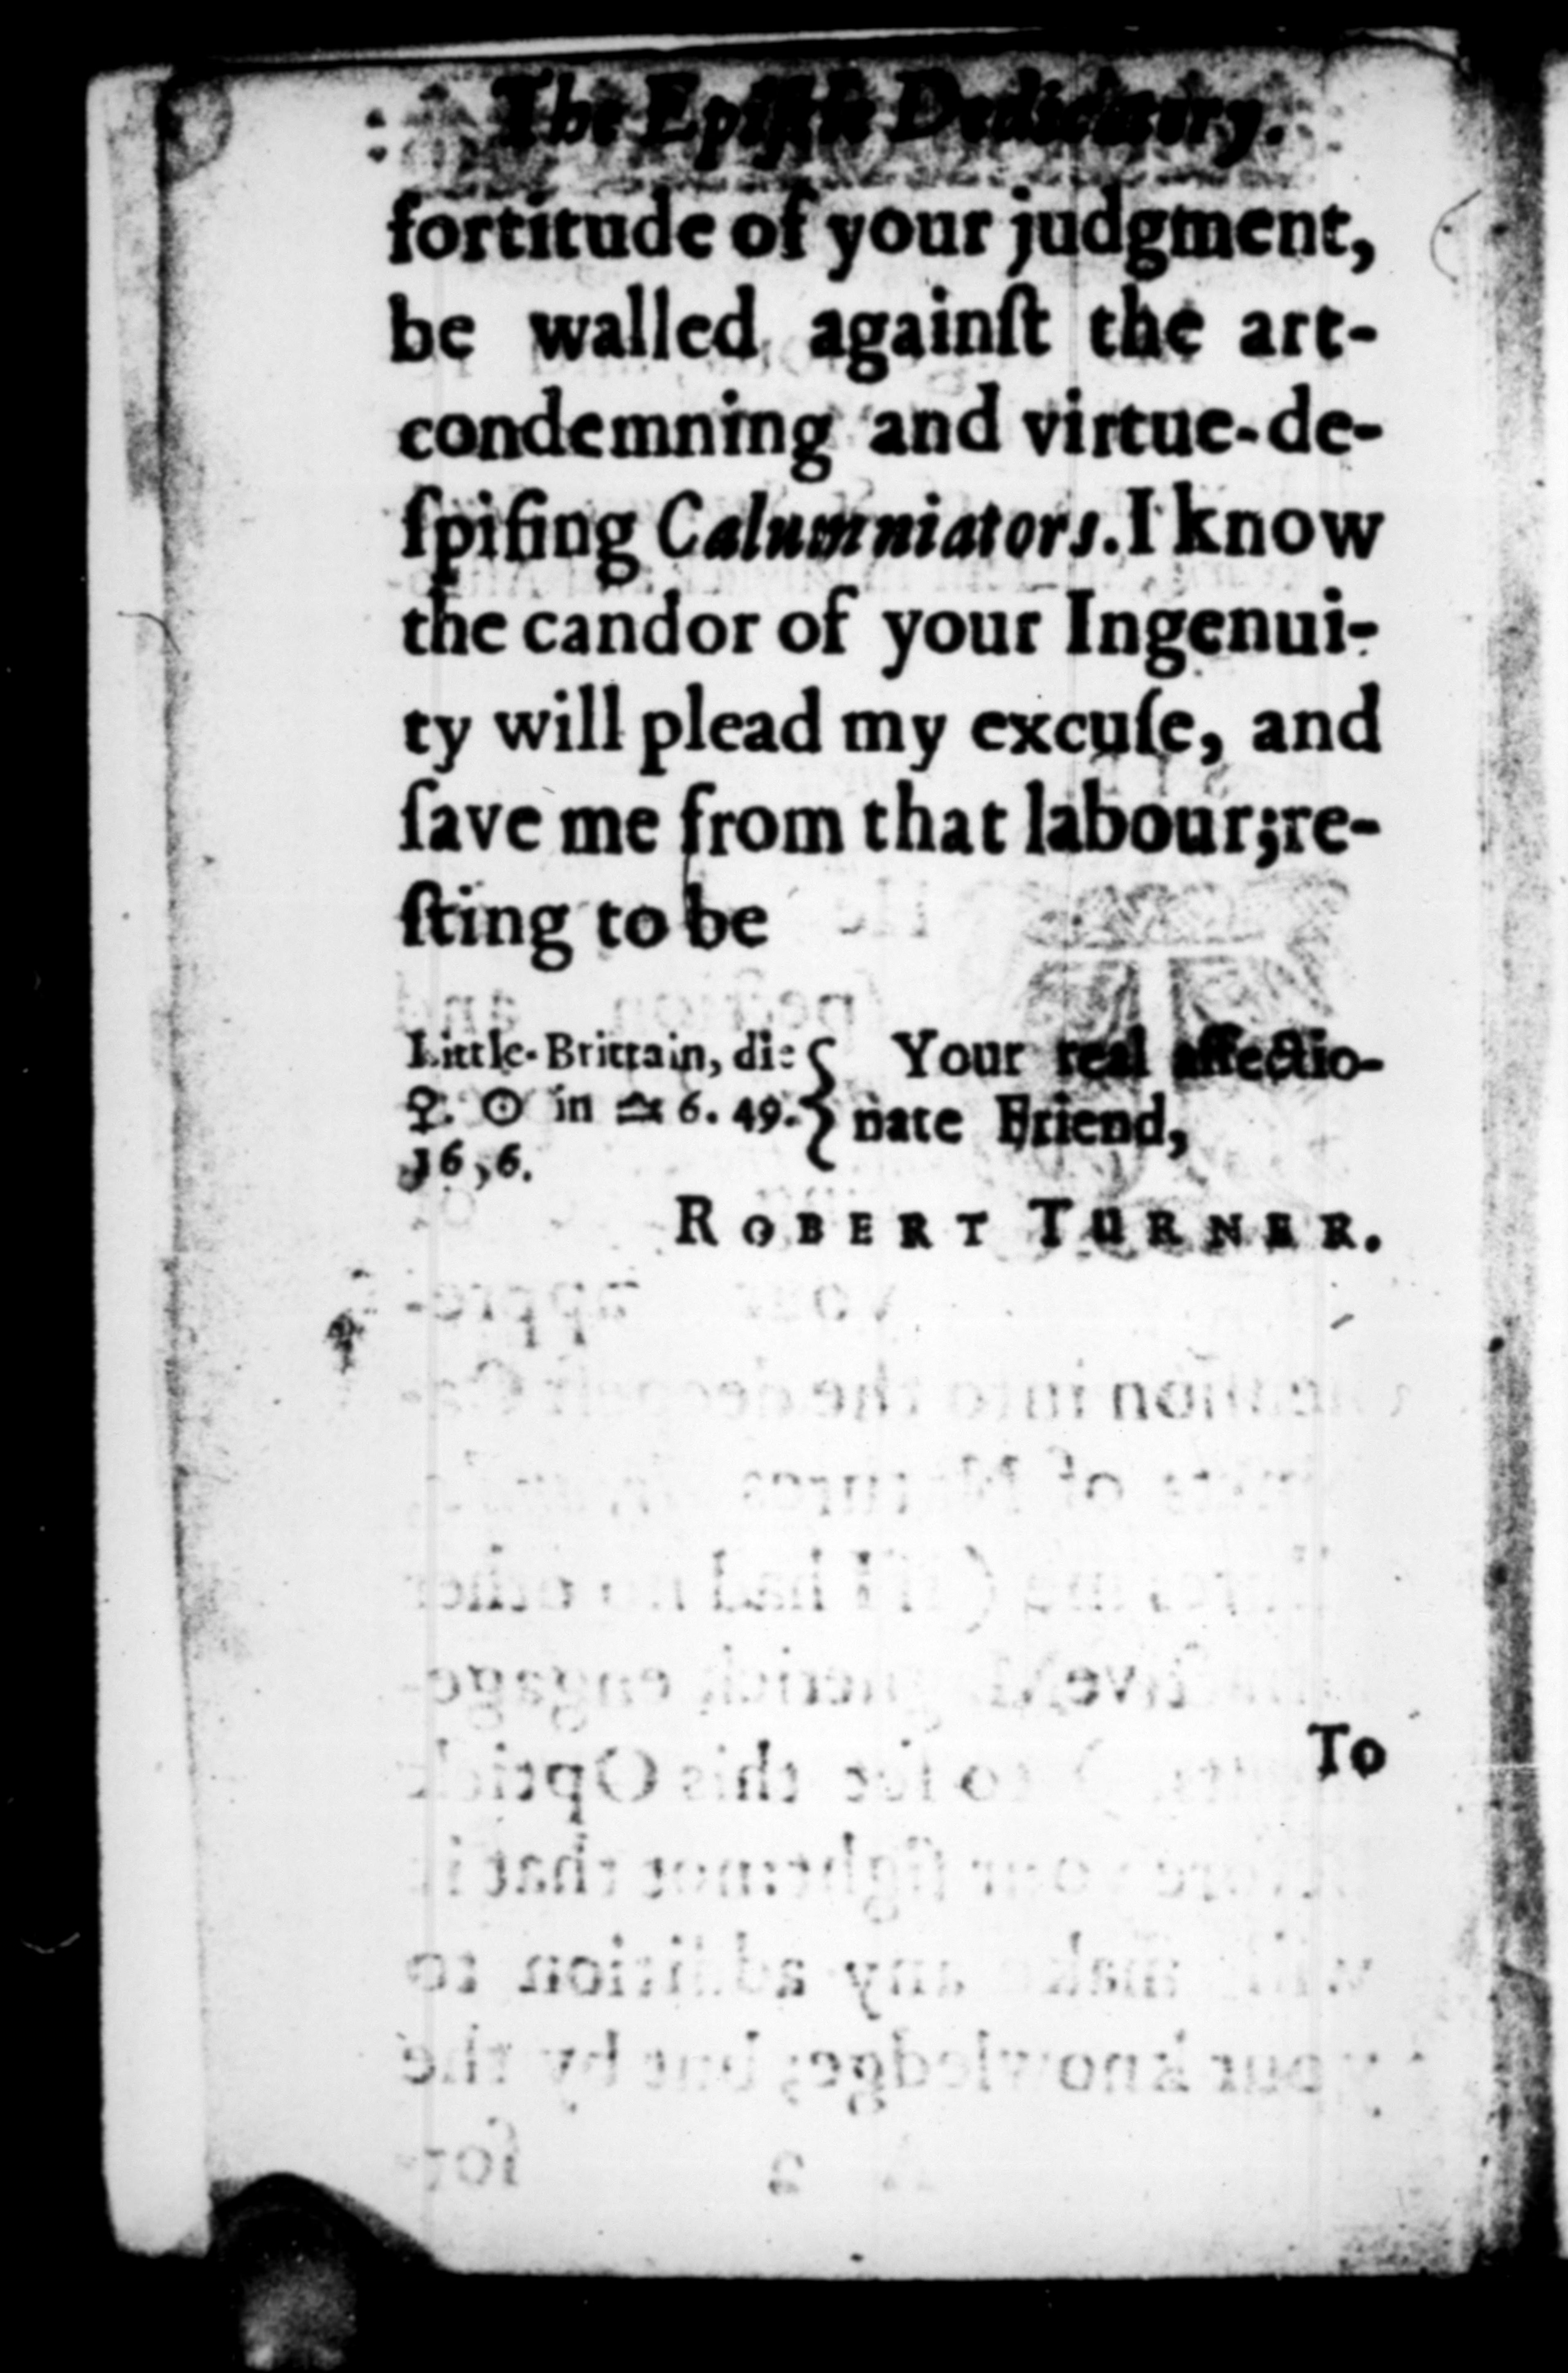 The Epiſtle Dedicatory.
fortitude of your judgment,
be walled againſt the art-
condemning and virtue-de-
ſpiſing Calumniators. I know
the candor of your Ingenui-
ty will plead my excuſe, and
ſave me from that labour; re-
ſting to be
Little-Brittain, die
♀. ☉ in ♎ 6. 49.
16,6.
Your real affectio-
nate Friend,
ROBERT TURNER.
To